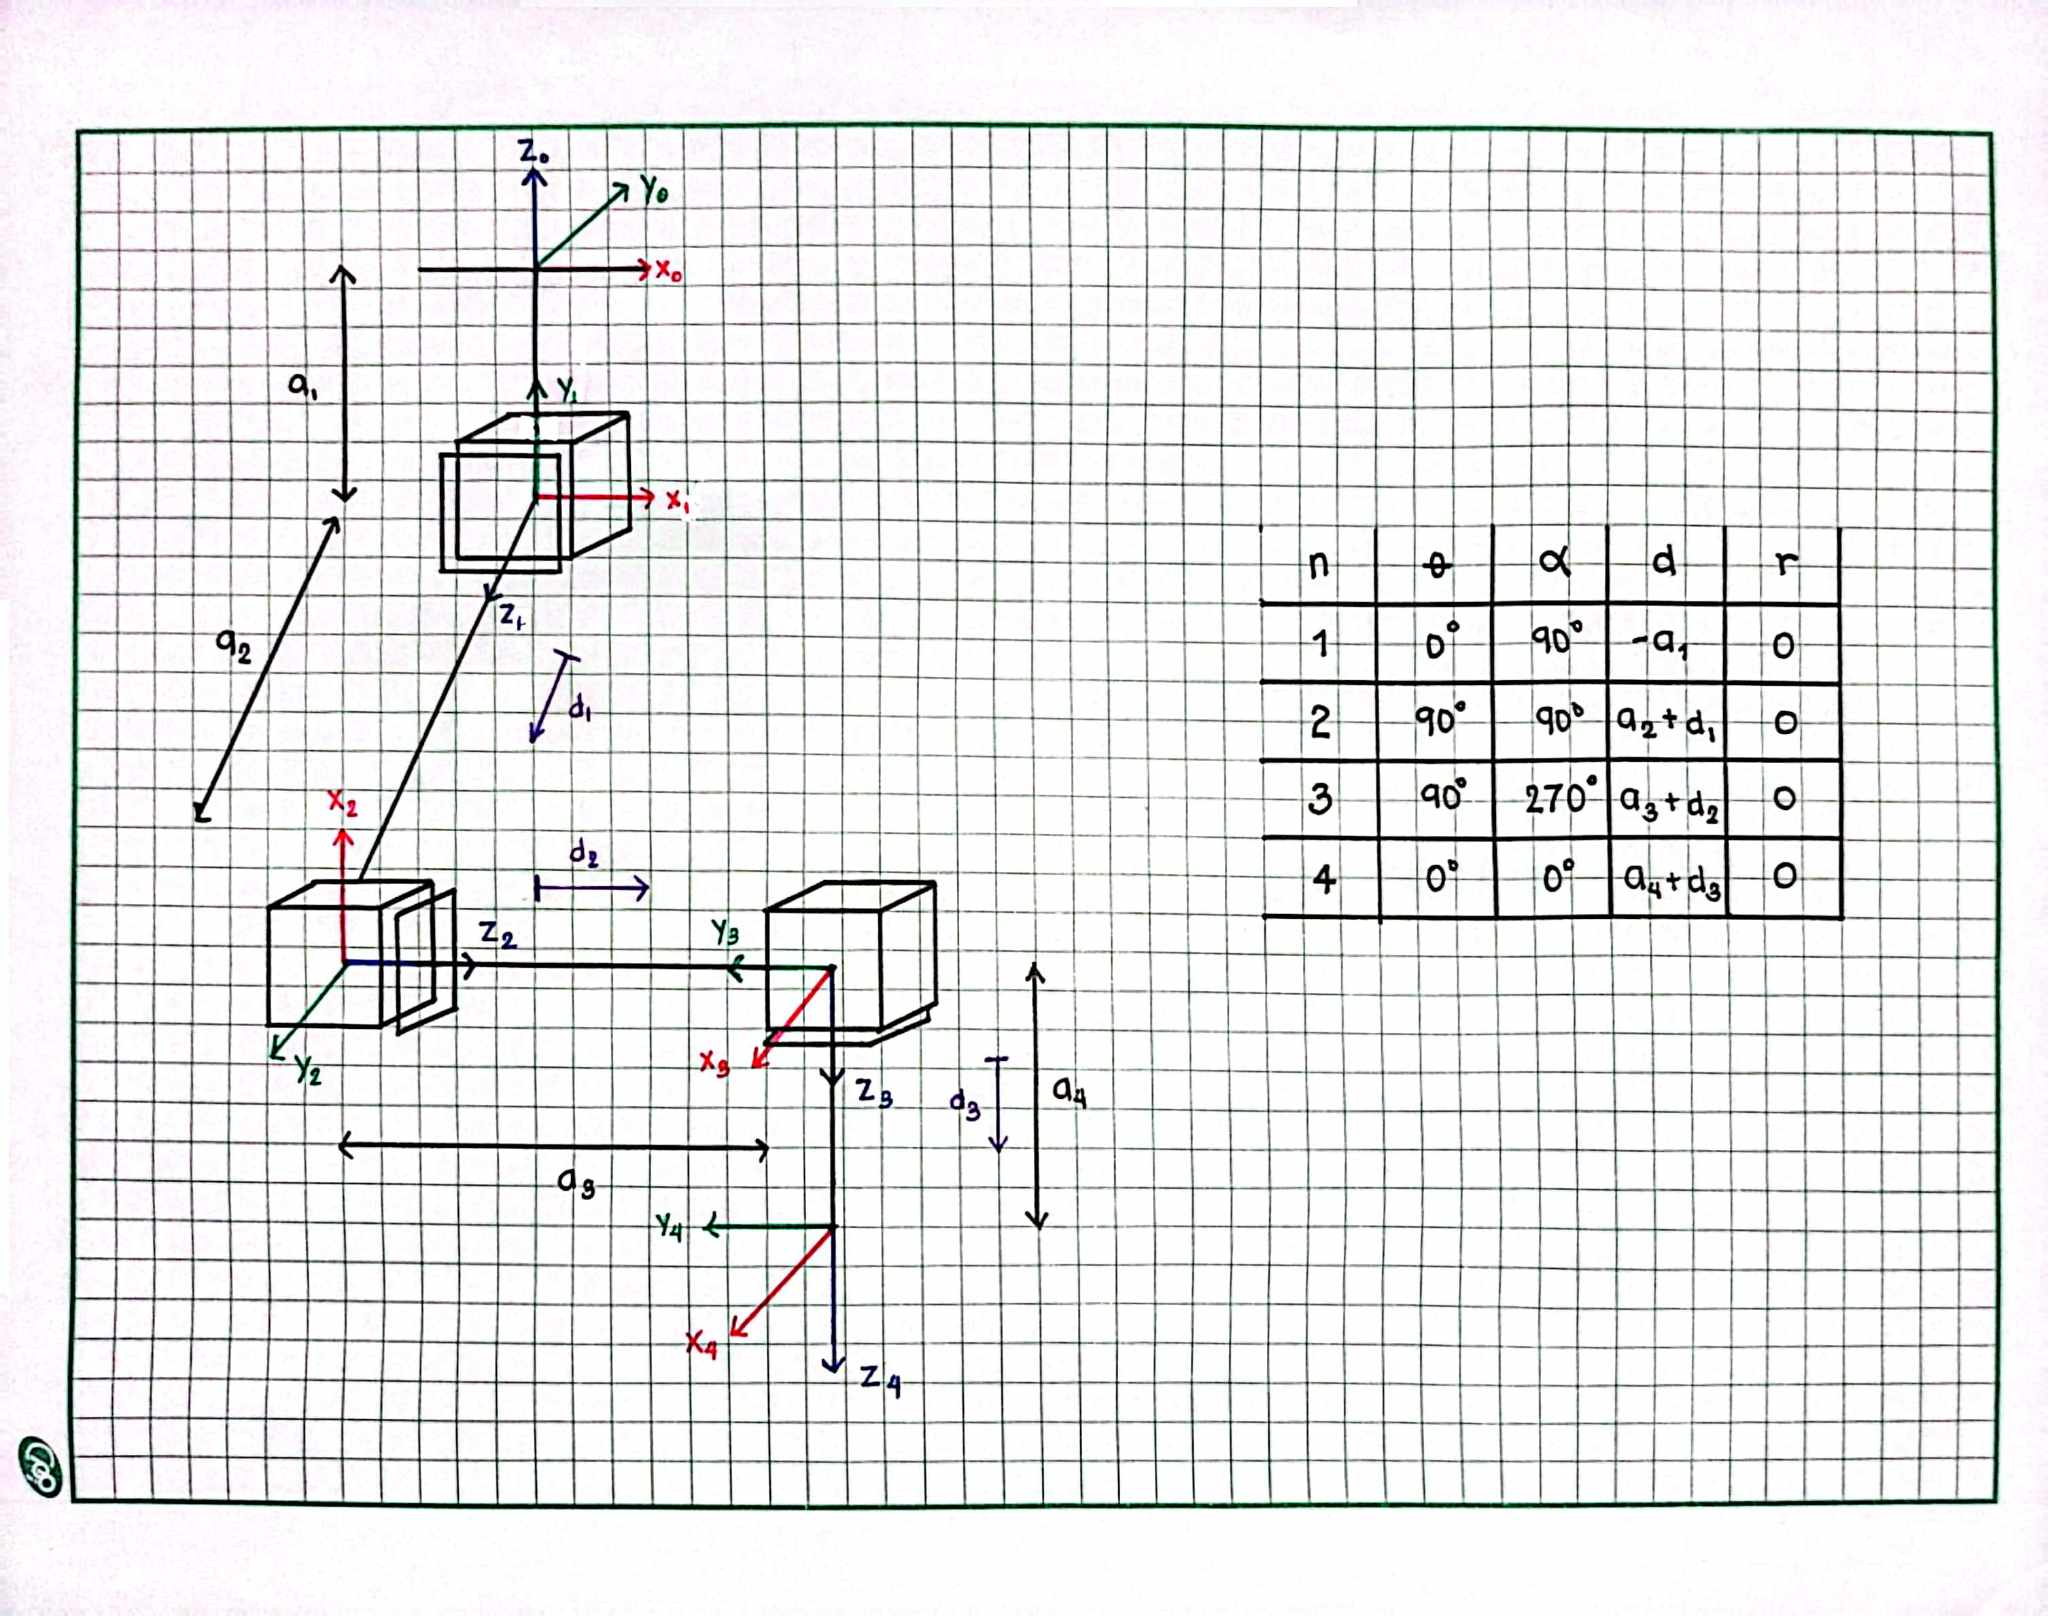 Z₀
Y₀
X₀
a₁
Y₁
X₁
Z₁
a₂
d₁
X₂
d₂
Z₂
Y₂
Y₃
X₃
Z₃
d₃
a₄
a₃
Y₄
X₄
Z₄
n θ α d r
1 0° 90° -a₁ 0
2 90° 90° a₂+d₁ 0
3 90° 270° a₃+d₂ 0
4 0° 0° a₄+d₃ 0